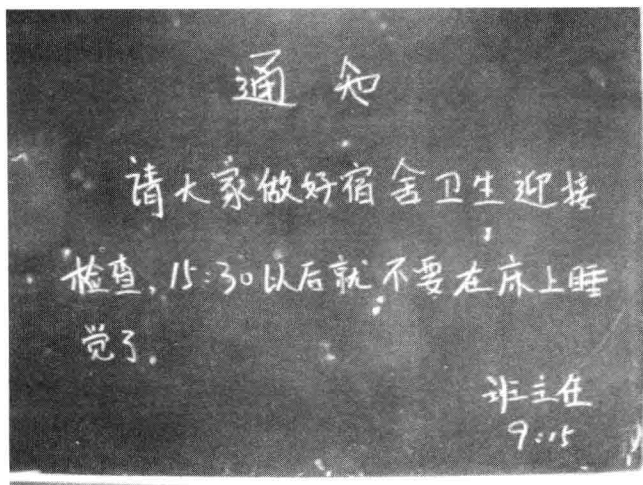 通知
请大家做好宿舍卫生迎接
检查,15:30以后就不要在床上睡
觉了.
班主任
9:15